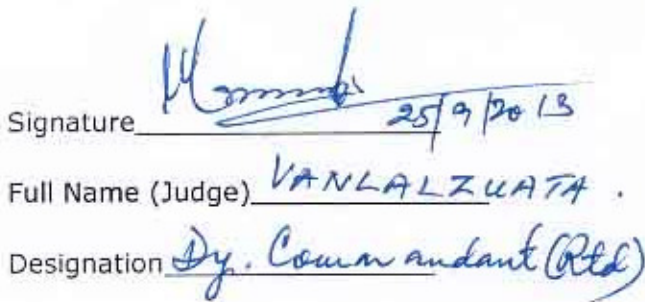 Signature 25/9/2013
Full Name (Judge) VANLALZUATA.
Designation Dy. Commandant (Rtd)